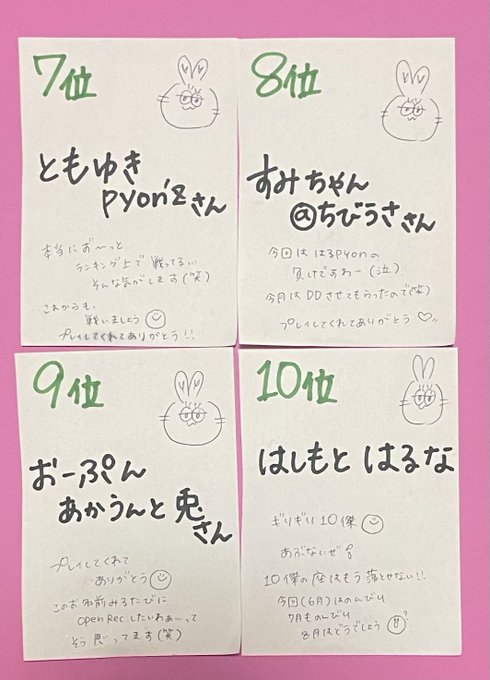 7位
ともゆき
pyon'zさん
本当にお〜っと
ランキング上で戦ってる...
そんな気がします(笑)
これからも、
戦いましょう
プレイしてくれてありがとう!!
8位
すみちゃん
@ちびうささん
今回は はるpyonの
負けですわー(泣)
今月はDDさせてもらったので(笑)
プレイしてくれてありがとう♡〃
9位
おーぷん
あかうんと 兎
さん
プレイしてくれて
ありがとう
このお名前みるたびに
OpenRecしたいわぁ〜って
そう思ってます(笑)
10位
はしもと はるな
ギリギリ10傑
あぶないぜ
10傑の座はもう落とせない!!
今回(6月)はのんびり
7月ものんびり
8月はどうでしょう
?